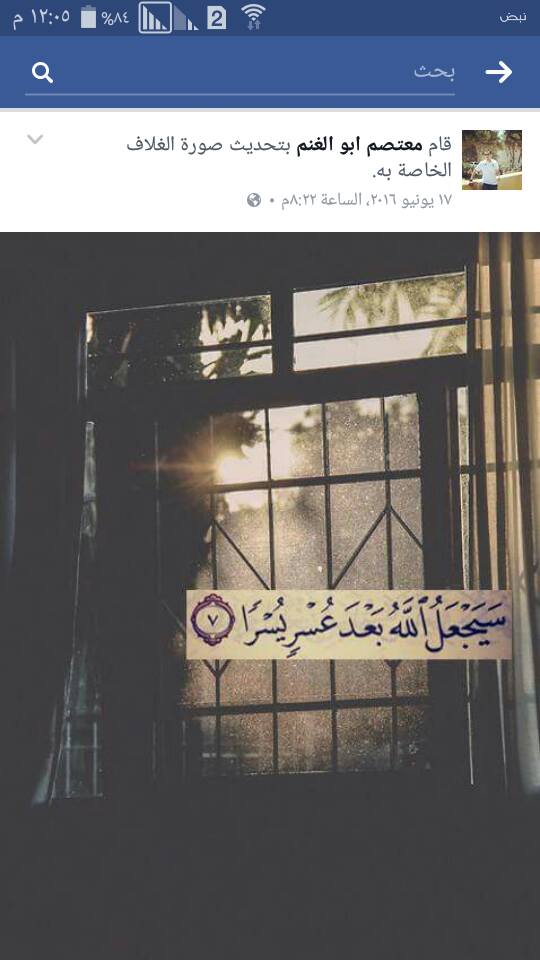 نبض
2
٨٤%
١٢:٠٥ م
بحث
قام معتصم ابو الغنم بتحديث صورة الغلاف
الخاصة به.
١٧ يونيو ٢٠١٦، الساعة ٨:٢٢م •
سَيَجْعَلُ ٱللَّهُ بَعْدَ عُسْرٍ يُسْرًا ٧